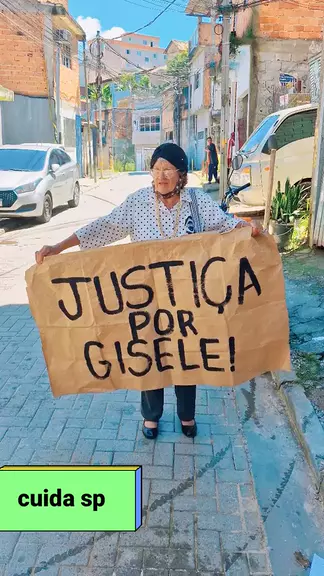 JUSTIÇA
POR
GISELE!
cuida sp